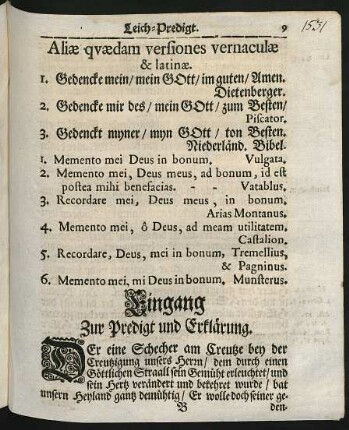 Leich-Predigt. 9
1531
Aliæ qvædam versiones vernaculæ
& latinæ.
1. Gedencke mein/ mein GOtt/ im guten/ Amen.
Dietenberger.
2. Gedencke mir des/ mein GOtt/ zum Besten/
Piscator.
3. Gedenckt myner/ myn GOtt/ ton Besten.
Niederländ. Bibel.
1. Memento mei Deus in bonum. Vulgata.
2. Memento mei, Deus meus, ad bonum, id est
postea mihi benefacias. - - Vatablus.
3. Recordare mei, Deus meus, in bonum.
Arias Montanus.
4. Memento mei, ô Deus, ad meam utilitatem.
Castalion.
5. Recordare, Deus, mei in bonum, Tremellius,
& Pagninus.
6. Memento mei, mi Deus in bonum. Munsterus.
Eingang
Zur Predigt und Erklärung.
DEr eine Schecher am Creutze bey der
Creutzigung unsers Herrn/ dem durch einen
Göttlichen Straall sein Gemüht erleuchtet/ und
sein Hertz verändert und bekehret wurde/ bat
unsern Heyland gantz demühtig/ Er wolle doch seiner ge-
B den-